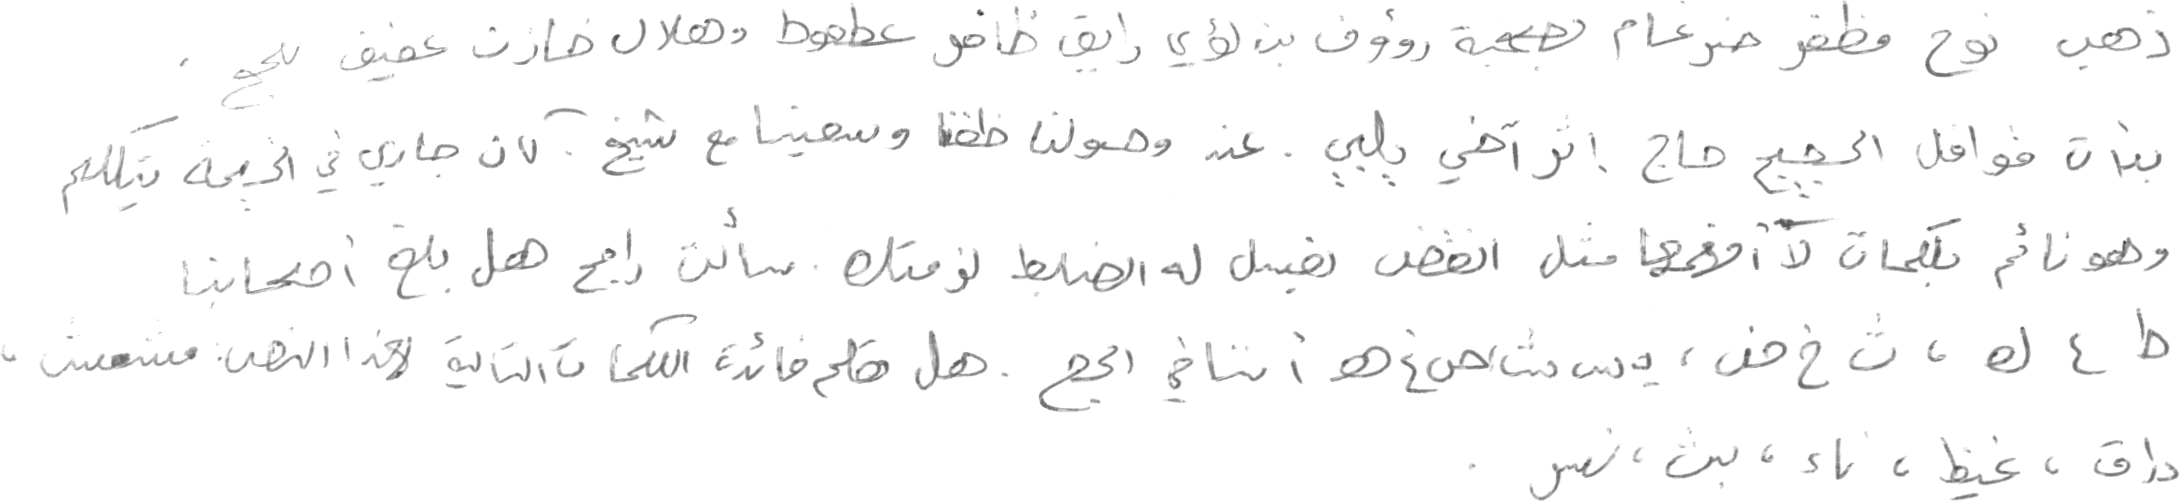 ذهب نوح مظفر ضرغام بصحبة رؤوف بن لؤي رايق ظافر عطعوط وهلال خازن عفيف للحج ،
بذات قوافل الحجيج حاج إثر آخي يلبي . عند وصولنا طفنا وسعينا مع شيخ . كان جاري في الخيمة يتكلم
وهو نائم بكلمات لا أفهمها مثل انغض نفيسل له الضابط لؤمتك . سألت رامح هل بلغ أصحابنا
ط ع ك ، ث خ ض ، ي س ش ص غ هـ أننا في الحج . هل تعلم فائدة الكلمات التالية لهذا النص : مشمش ،
داق ، غيظ ، ناء ، بث ، نس .